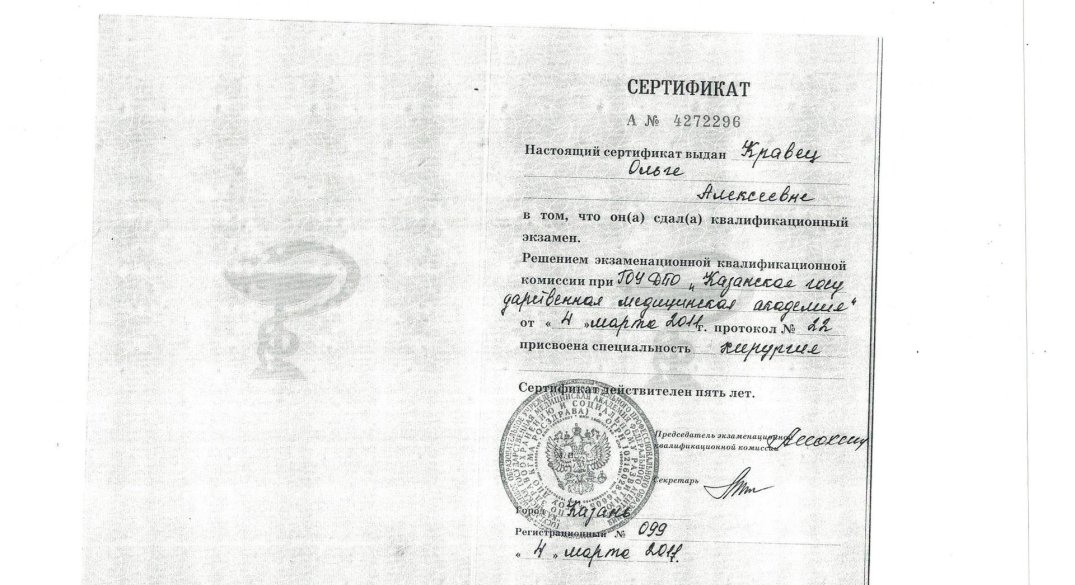 СЕРТИФИКАТ
А № 4272296
Настоящий сертификат выдан Кравец
Ольге
Алексеевне
в том, что он(а) сдал(а) квалификационный
экзамен.
Решением экзаменационной квалификационной
комиссии при ГОУ ДПО „Казанская госу
дарственная медицинская академия“
от « 4 » марта 2011 г. протокол № 22
присвоена специальность хирургия
Сертификат действителен пять лет.
Председатель экзаменационной
квалификационной комиссии
Секретарь
Город Казань
Регистрационный № 099
« 4 » марта 2011г.